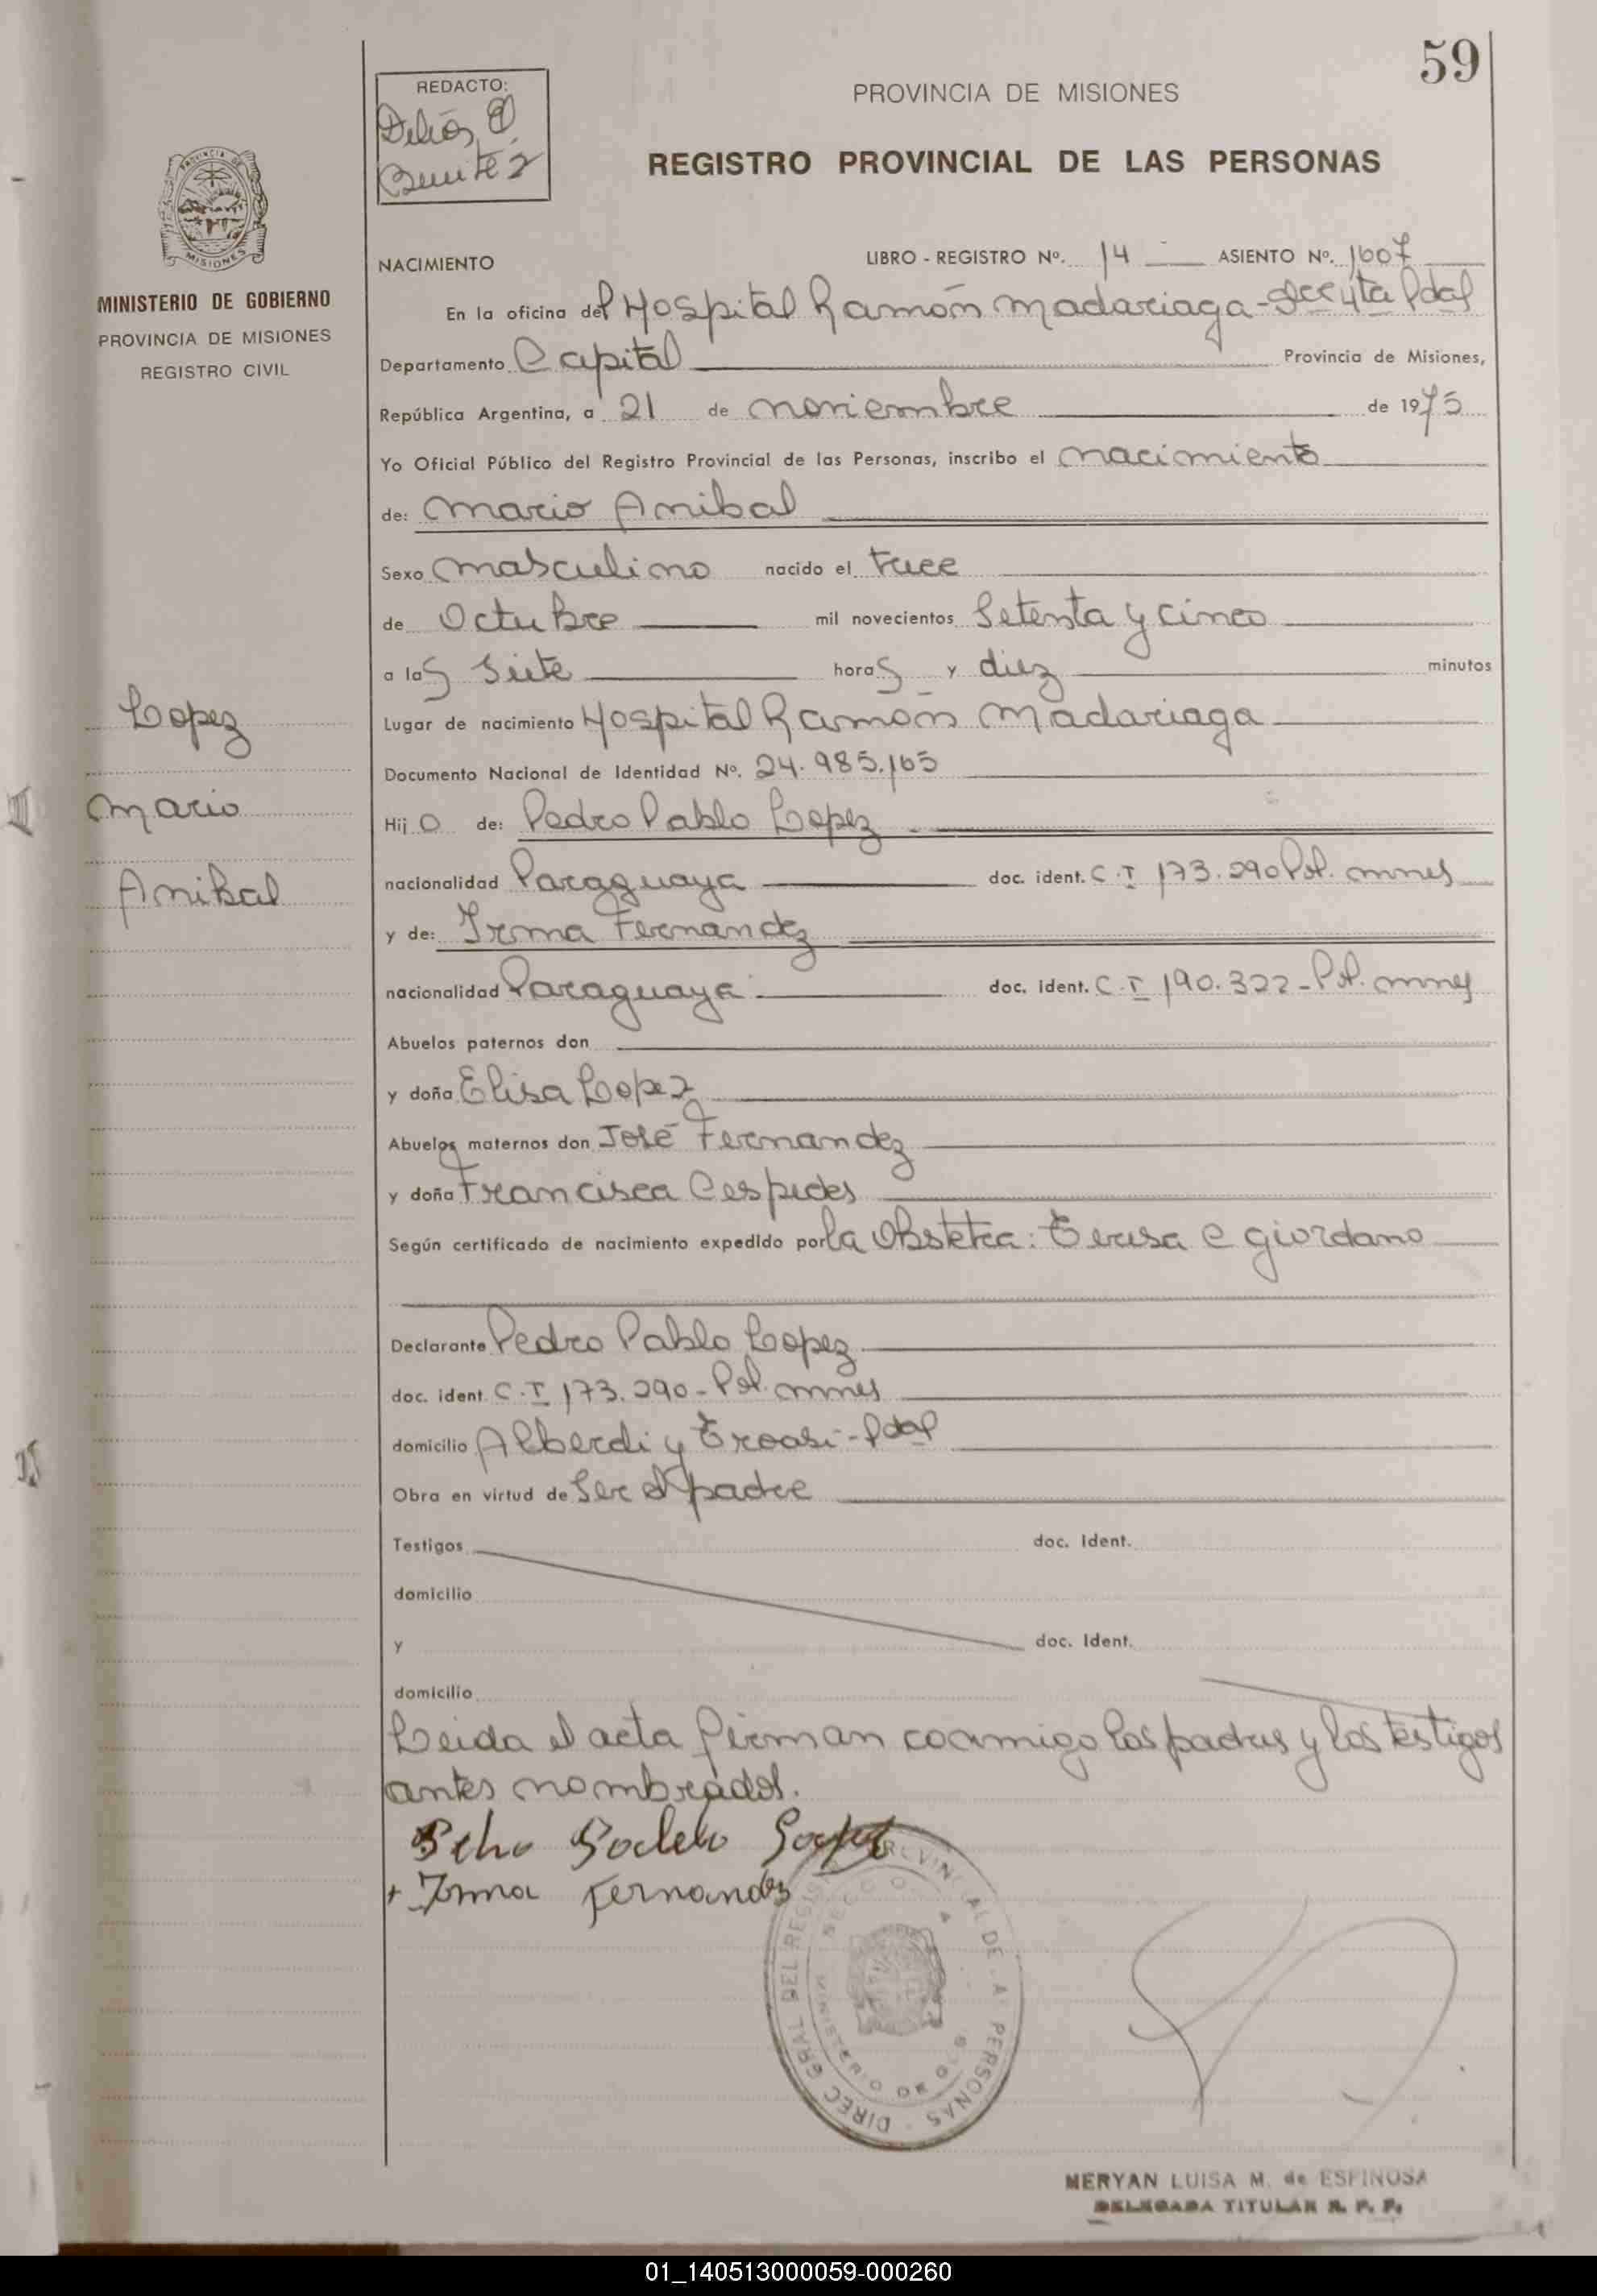 59
REDACTO:
Benitez
PROVINCIA DE MISIONES
REGISTRO PROVINCIAL DE LAS PERSONAS
PROVINCIA DE MISIONES
MINISTERIO DE GOBIERNO
PROVINCIA DE MISIONES
REGISTRO CIVIL
NACIMIENTO LIBRO - REGISTRO Nº. 14 ASIENTO Nº. 1607
En la oficina del Hospital Ramón Madariaga - Secc 4ta Pdas
Departamento Capital Provincia de Misiones,
República Argentina, a 21 de noviembre de 1975
Yo Oficial Público del Registro Provincial de las Personas, inscribo el nacimiento
de: Mario Anibal
Sexo masculino nacido el trece
de Octubre mil novecientos Setenta y cinco
a las Siete horas y diez minutos
Lugar de nacimiento Hospital Ramón Madariaga
Documento Nacional de Identidad Nº. 24.985.165
Hijo de: Pedro Pablo Lopez
nacionalidad Paraguaya doc. ident. C.I 173.290 Pol. mnes
y de: Irma Fernandez
nacionalidad Paraguaya doc. ident. C.I 190.322 - Pol. mnes
Abuelos paternos don
y doña Elisa Lopez
Abuelos maternos don José Fernandez
y doña Francisca Cespedes
Según certificado de nacimiento expedido por la Obstetra: Teresa E Giordano
Declarante Pedro Pablo Lopez
doc. ident. C.I 173.290 - Pol. mnes
domicilio Alberdi y - Pdas
Obra en virtud de Ser el padre
Testigos doc. Ident.
domicilio
y doc. Ident.
domicilio
Leida el acta firman conmigo los padres y los testigos
antes nombrados.
+ Irma Fernandez
Lopez
Mario
Anibal
DIREC GRAL DEL REGISTRO PROVINCIAL DE LAS PERSONAS
MINISTERIO DE GOB.
MERYAN LUISA M. de ESPINOSA
DELEGADA TITULAR R. P. P.
01_140513000059-000260